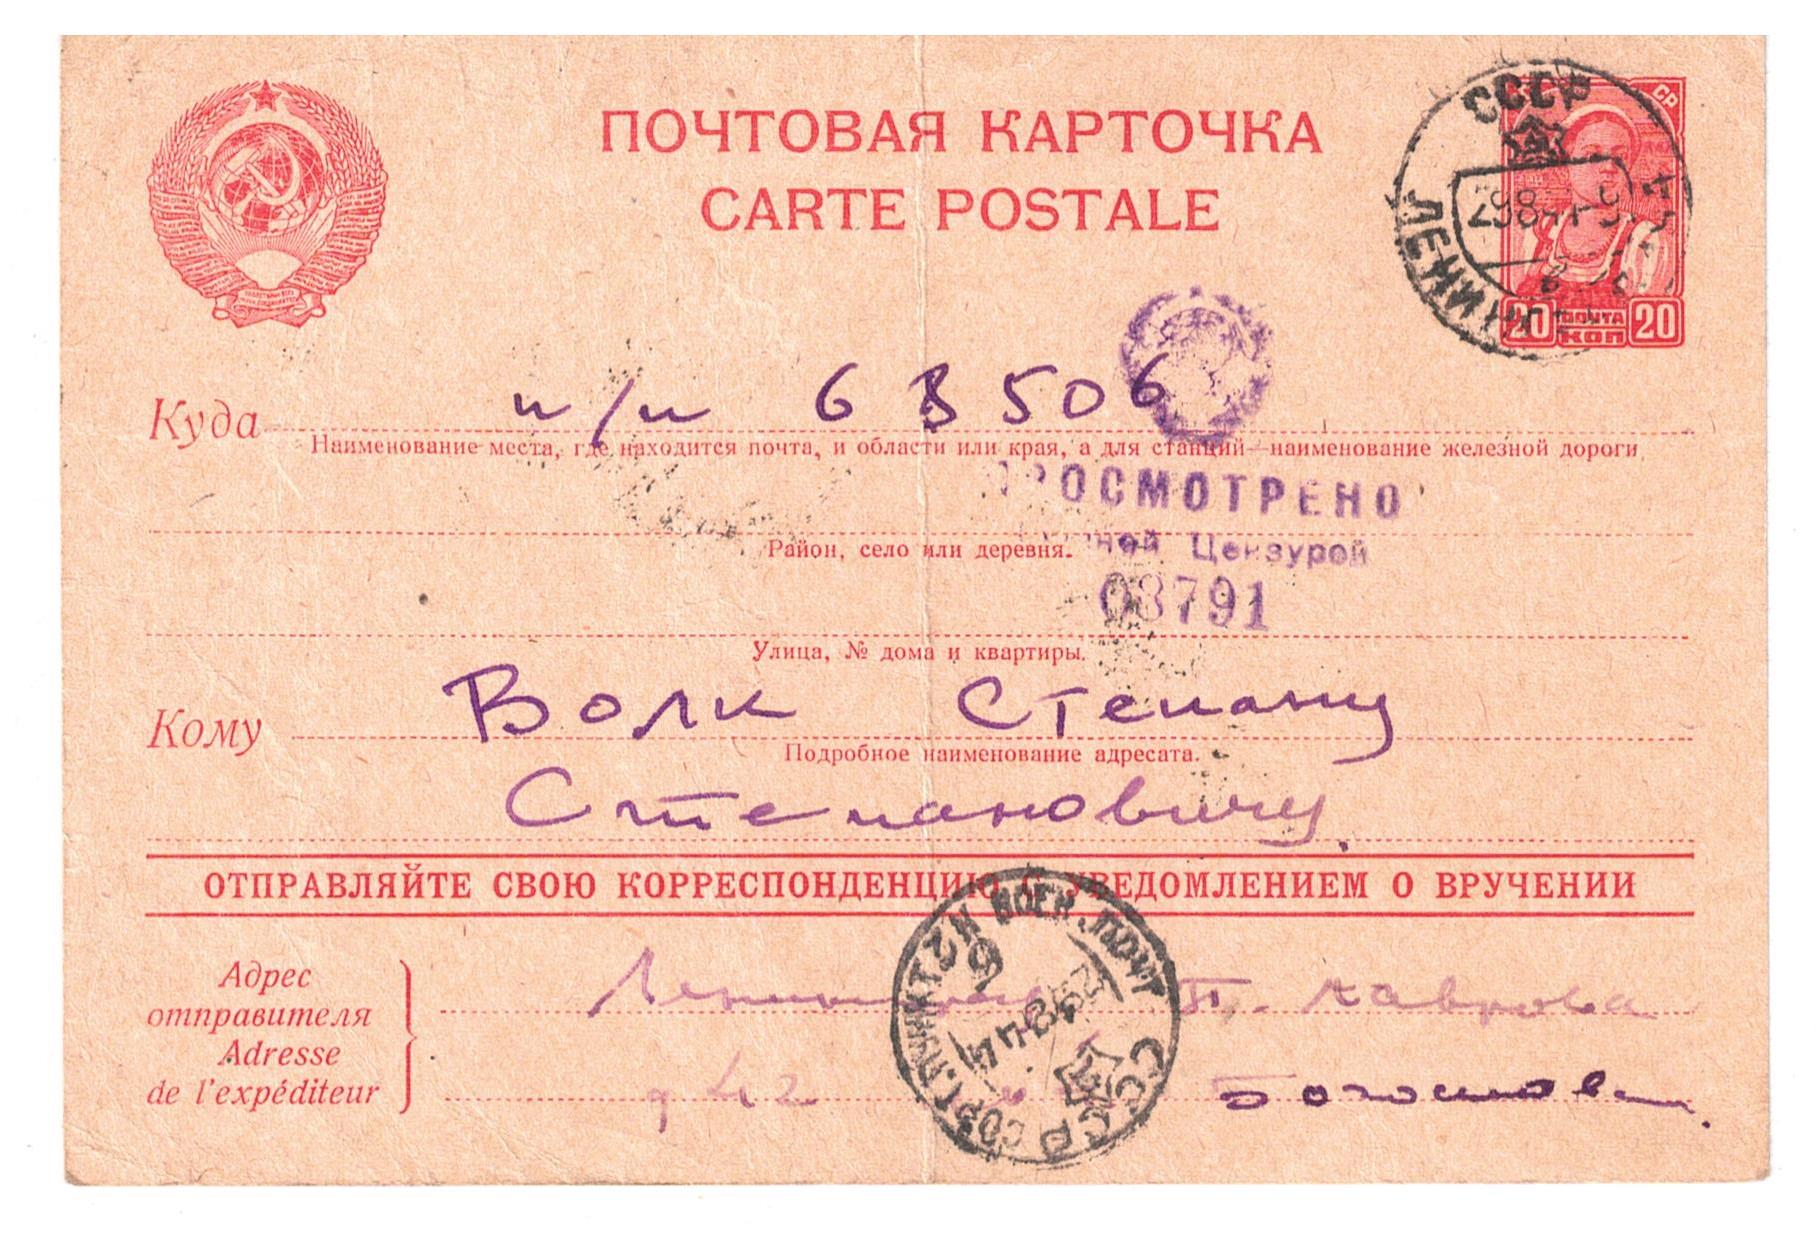 ПОЧТОВАЯ КАРТОЧКА
CARTE POSTALE
СССР
ЛЕНИНГРАД
20 ПОЧТА КОП 20
Куда п/п 63506
Наименование места, где находится почта, и области или края, а для станций—наименование железной дороги
ПРОСМОТРЕНО
Район, село или деревня.
Цензурой
03791
Улица, № дома и квартиры.
Кому Волк Степану
Подробное наименование адресата.
Степановичу.
ОТПРАВЛЯЙТЕ СВОЮ КОРРЕСПОНДЕНЦИЮ С УВЕДОМЛЕНИЕМ О ВРУЧЕНИИ
Адрес
отправителя
Adresse
de l'expéditeur
Ленинград П. Лаврова
д 42
СОРТ. ПУНКТ ВОЕН. ПОЧТ СССР